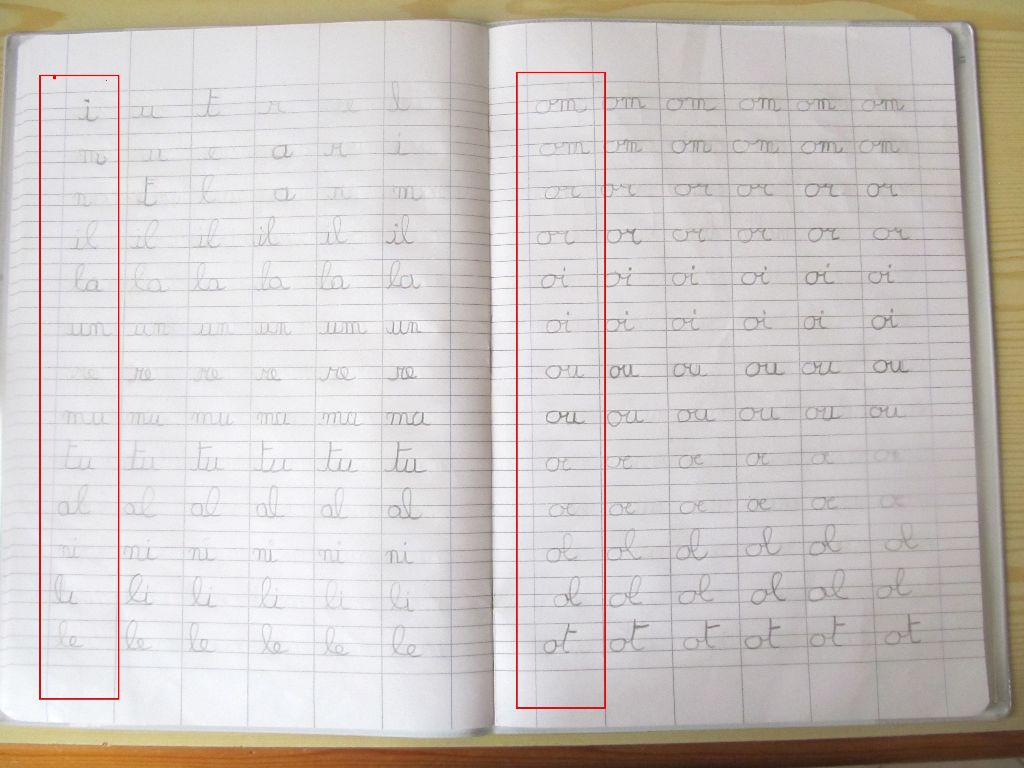 i u t r e l
m u e a r i
n t l a n m
il il il il il il
la la la la la la
un un un un um un
re re re re re re
mu mu mu ma ma ma
tu tu tu tu tu tu
al al al al al al
ni ni ni ni ni ni
li li li li li li
le le le le le le
om om om om om om
om om om om om om
or or or or or or
or or or or or or
oi oi oi oi oi oi
oi oi oi oi oi oi
ou ou ou ou ou ou
ou ou ou ou ou ou
oc oc oc oc oc oc
oc oc oc oc oc oc
ol ol ol ol ol ol
ol ol ol ol ol ol
ot ot ot ot ot ot